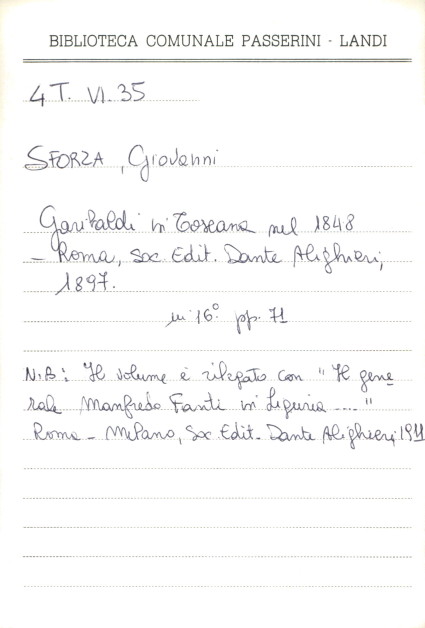 BIBLIOTECA COMUNALE PASSERINI - LANDI
4 T. VI. 35
SFORZA, Giovanni
Garibaldi in Toscana nel 1848
- Roma, Soc. Edit. Dante Alighieri,
1897.
in 16° pp. 71
N.B: Il volume è rilegato con "Il gene
rale Manfredo Fanti in Liguria ...."
Roma - Milano, Soc. Edit. Dante Alighieri, 1911